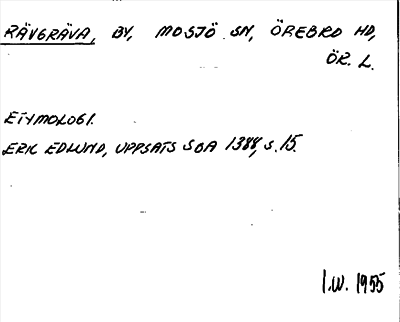 RÄVGRÄVA, BY, MOSJÖ SN, ÖREBRO HD,
ÖR. L.
ETYMOLOGI.
ERIK EDLUND, UPPSATS SOA 1388, S. 15.
I.W. 1955